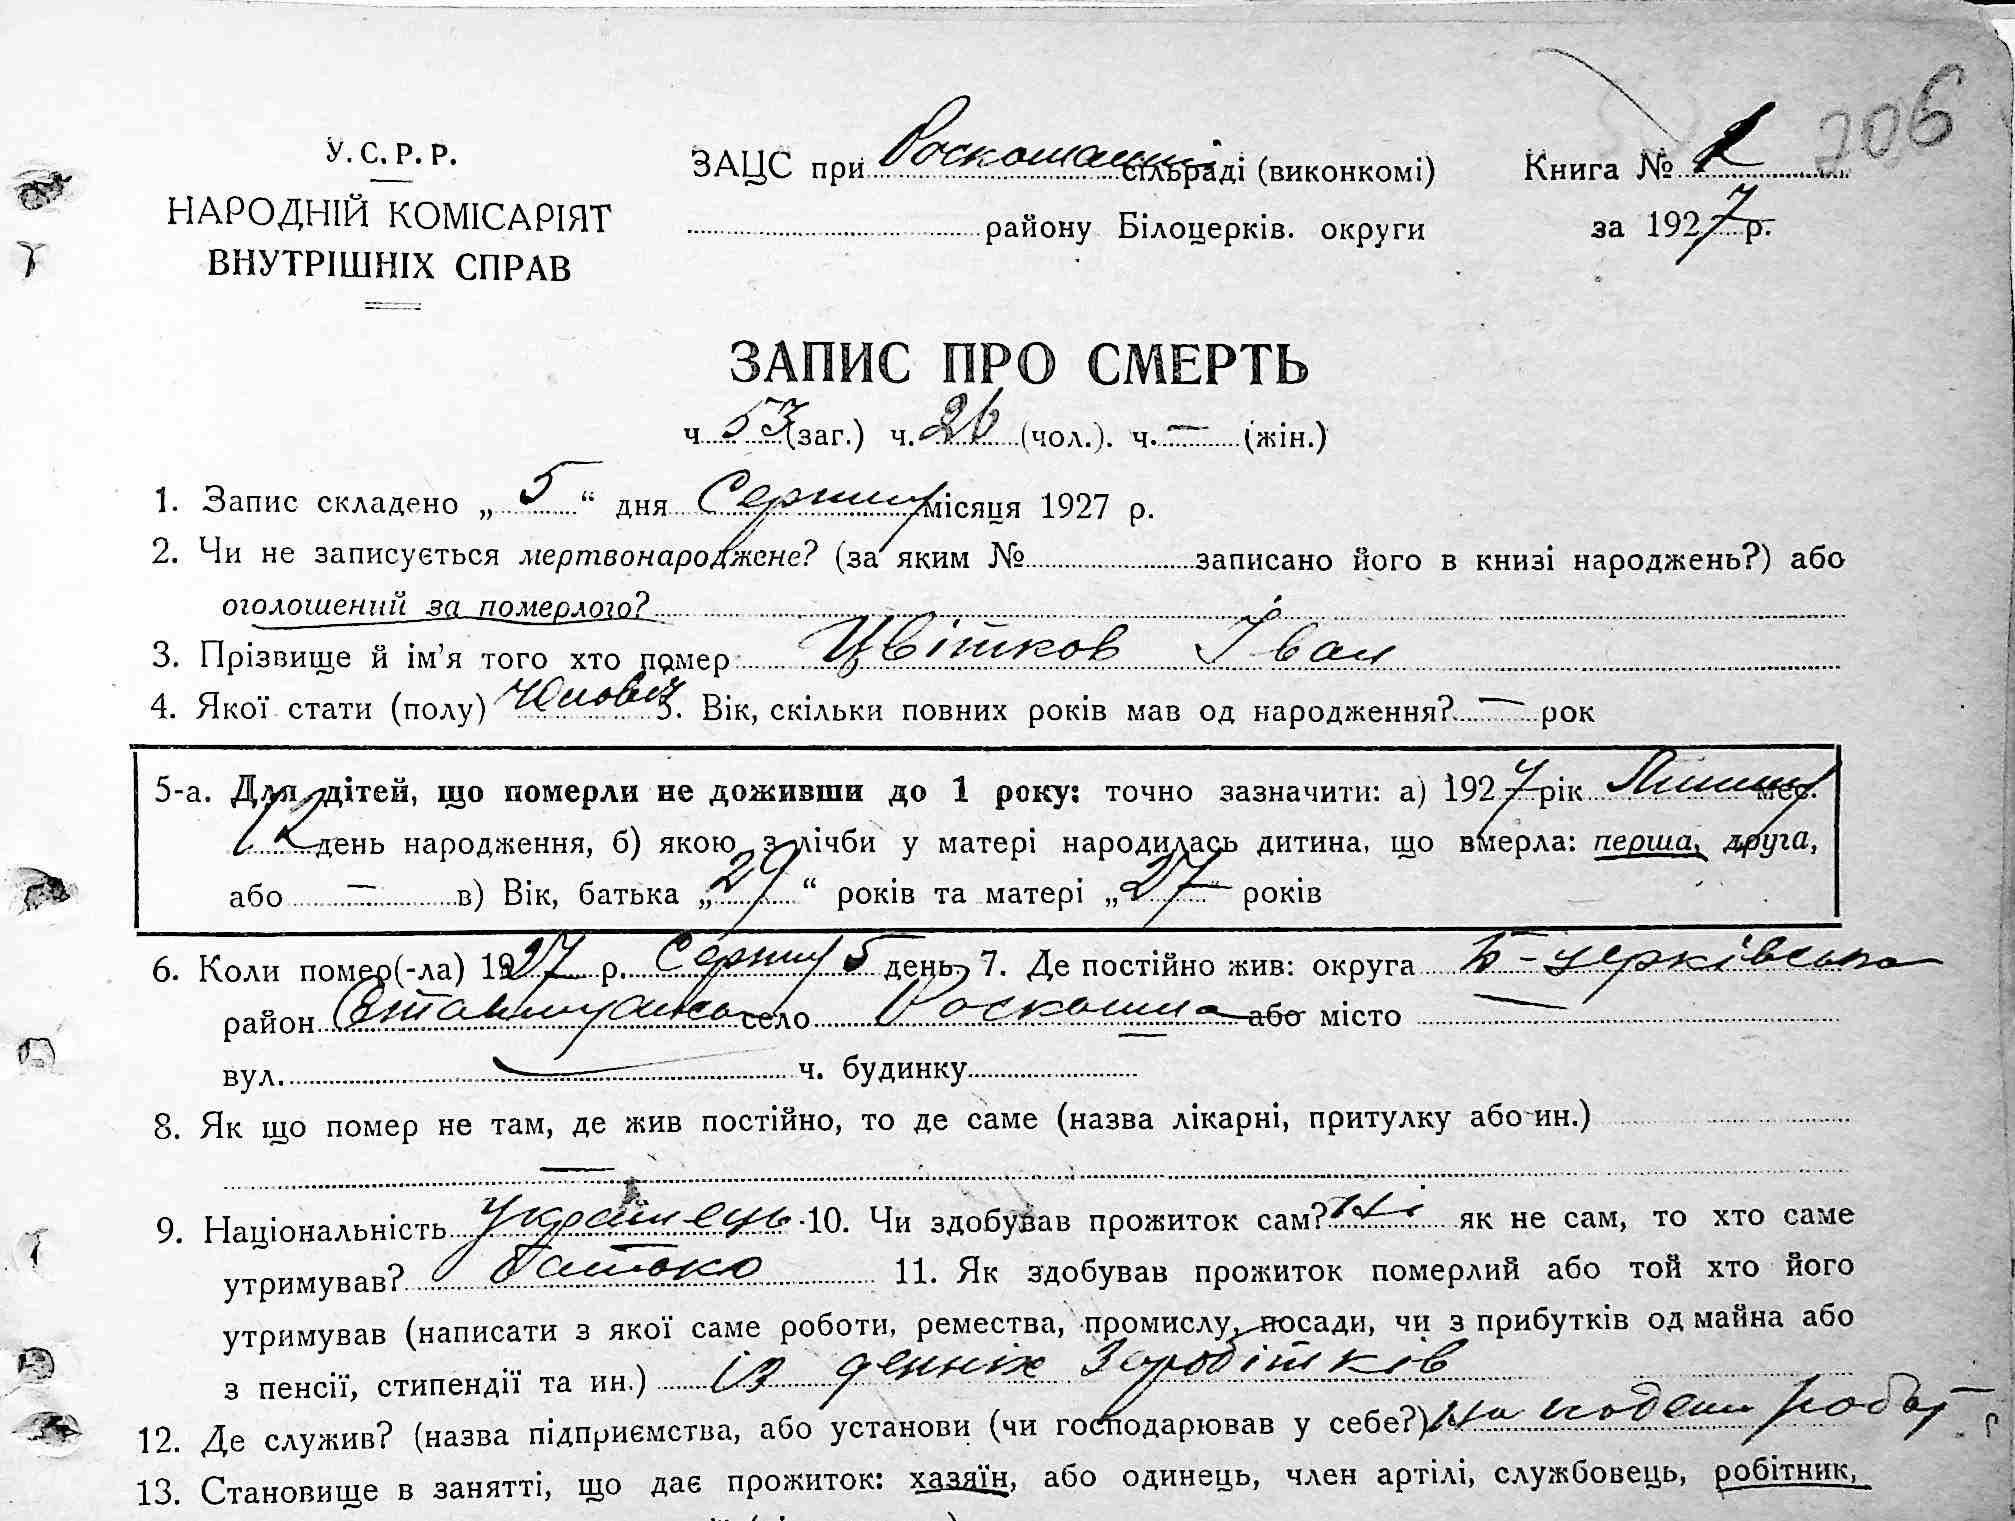 206
У. С. Р. Р.
НАРОДНІЙ КОМІСАРІЯТ
ВНУТРІШНІХ СПРАВ
ЗАЦС при Роскошанській сільраді (виконкомі)
району Білоцерків. округи
Книга № 2
за 1927 р.
ЗАПИС ПРО СМЕРТЬ
ч 53 (заг.) ч. 26 (чол.). ч. — (жін.)
1. Запис складено „ 5 “ дня Серпня місяця 1927 р.
2. Чи не записується мертвонароджене? (за яким № записано його в книзі народжень?) або
оголошений за померлого?
3. Прізвище й ім’я того хто помер Цвітков Іван
4. Якої стати (полу) Чоловіч 5. Вік, скільки повних років мав од народження? — рок
5-а. Для дітей, що померли не доживши до 1 року: точно зазначити: а) 1927 рік Липня мес.
12 день народження, б) якою з лічби у матері народилась дитина, що вмерла: перша, друга,
або — в) Вік, батька „ 29 “ років та матері „ 27 “ років
6. Коли помер(-ла) 1927 р. Серпня 5 день. 7. Де постійно жив: округа Б-церківська
район село Роскошна або місто —
вул. — ч. будинку
8. Як що помер не там, де жив постійно, то де саме (назва лікарні, притулку або ин.)
—
9. Національність Українець 10. Чи здобував прожиток сам? Ні як не сам, то хто саме
утримував? Батько 11. Як здобував прожиток померлий або той хто його
утримував (написати з якої саме роботи, ремества, промислу, посади, чи з прибутків од майна або
з пенсії, стипендії та ин.) із денніх Заробітків
12. Де служив? (назва підприємства, або установи (чи господарював у себе?) На роботі
13. Становище в занятті, що дає прожиток: хазяїн, або одинець, член артілі, службовець, робітник,